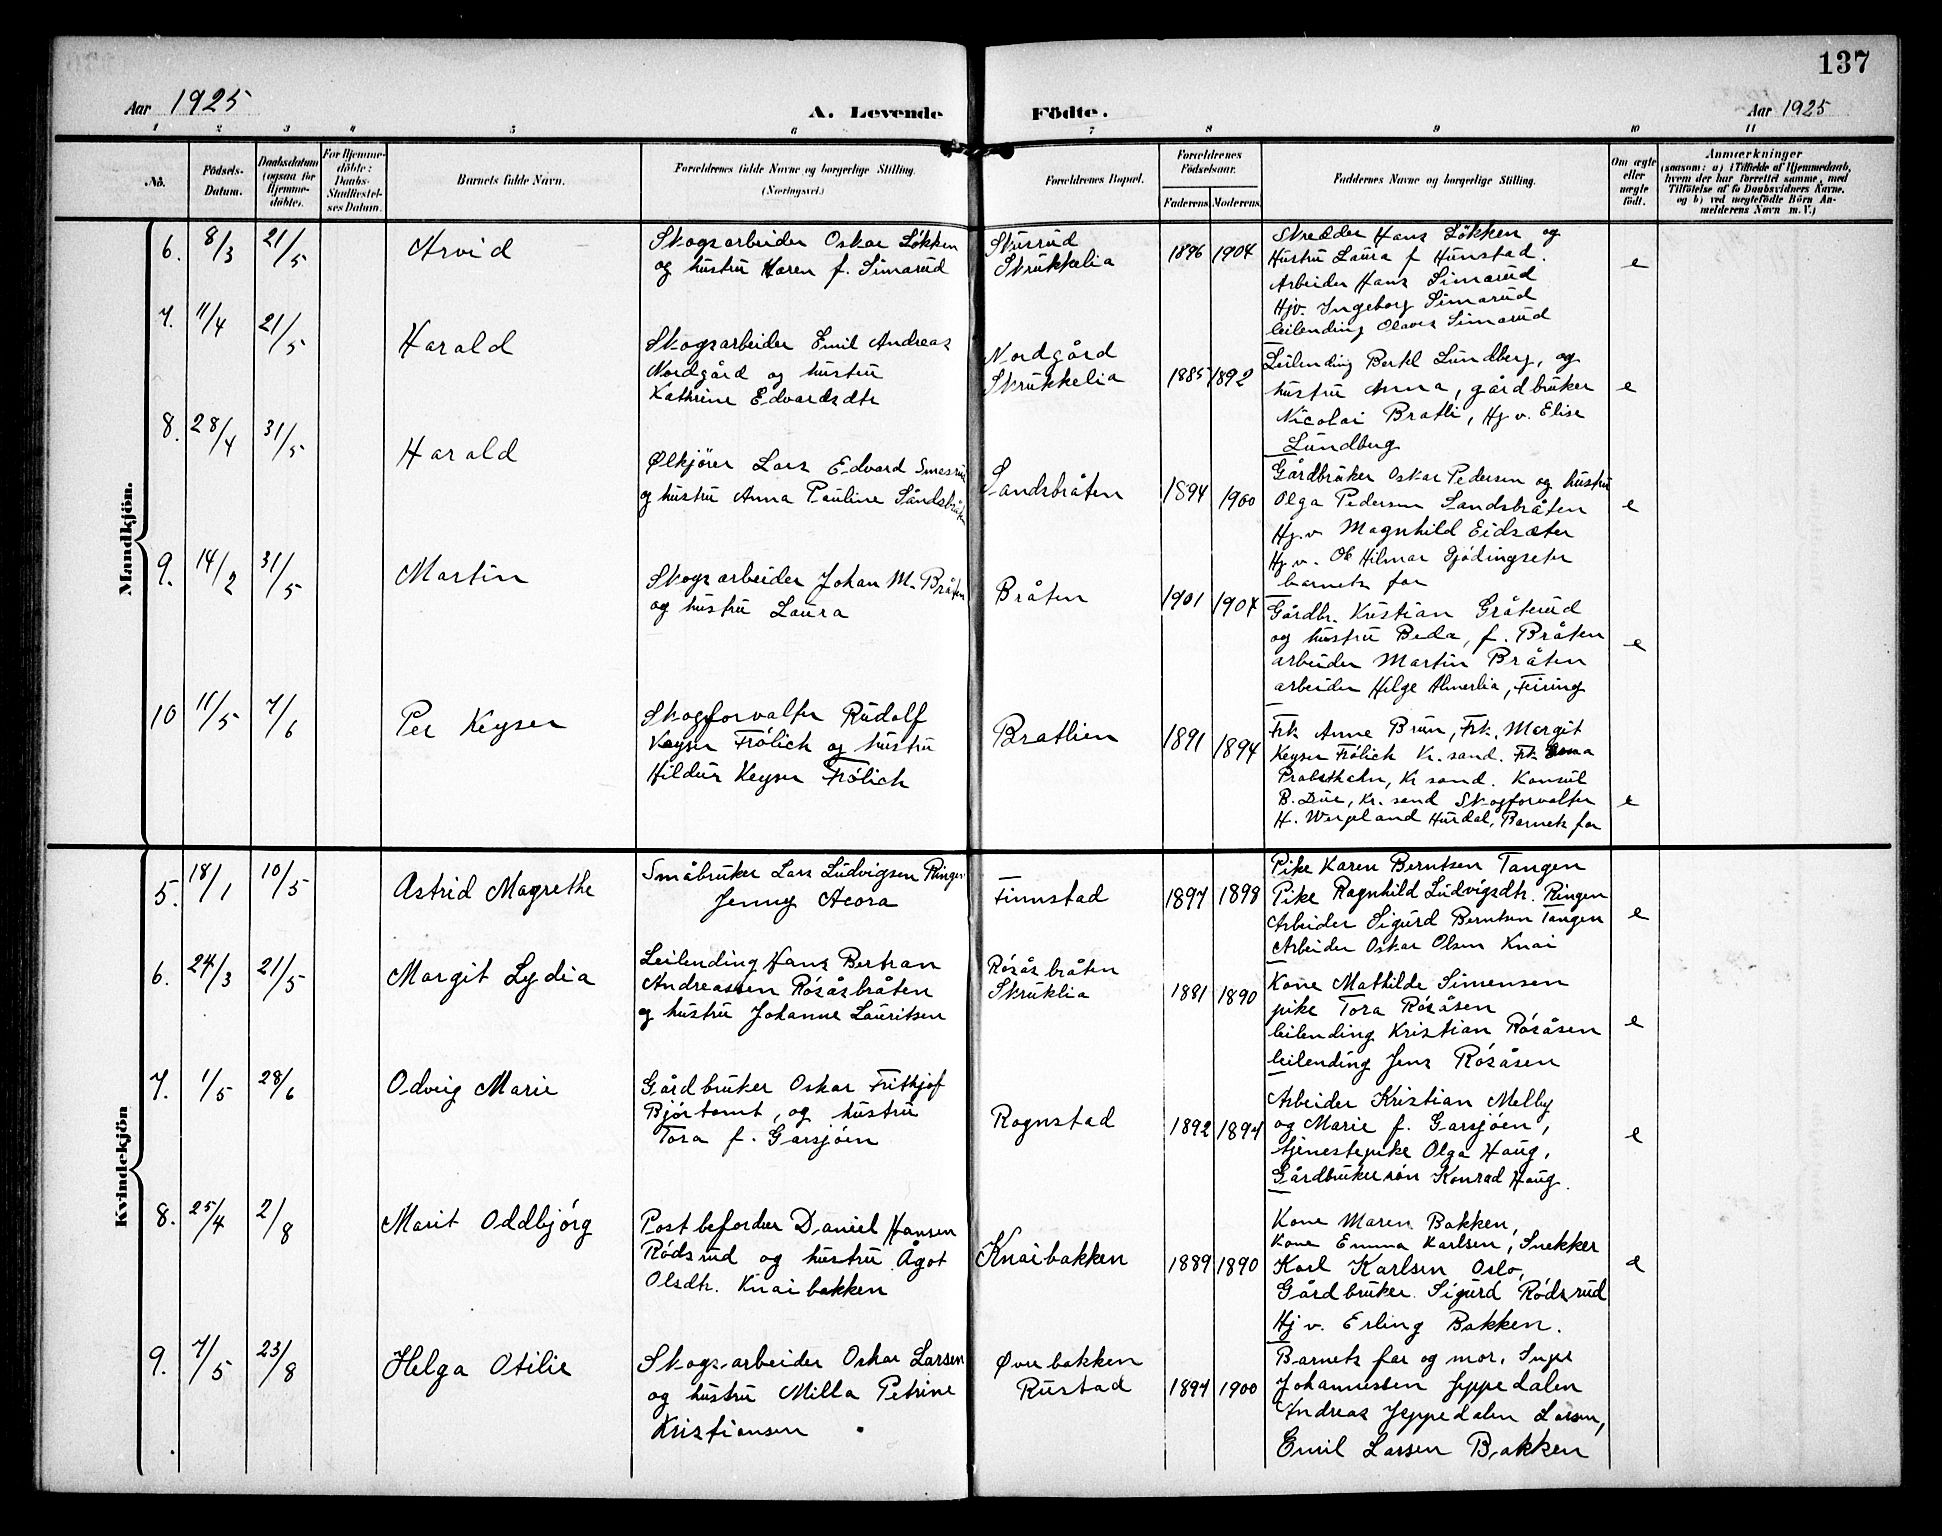 137
Aar 1925
A. Levende Födte.
Aar 1925
1 2 3 4 5 6 7 8 9 10 11
No.
Födsels-
Datum.
Daabsdatum
(ogsaa for
Hjemme-
döbte).
For Hjemme-
döbte:
Daabs-
Stadfæstel-
ses Datum.
Barnets fulde Navn.
Forældrenes fulde Navne og borgerlige Stilling.
(Næringsvei.)
Forældrenes Bopæl.
Forældrenes
Födselsaar.
Faderens Moderens
Faddernes Navne og borgerlige Stilling.
Om ægte
eller
uægte
födt.
Anmærkninger
(saasom: a) i Tilfælde af Hjemmedaab,
hvem der har forrettet samme, med
Tilföielse af to Daabsvidners Navne,
og b) ved uægtefödte Börn An-
melderens Navn m. V.)
Mandkjön.
6. 8/3 21/5 Arvid
Skogsarbeider Oskar Løkken
og hustru Karen f. Simarud
Skrukkelia
1896 1904
Skredder Hans Løkken og
Hustru Laura f Hunstad.
Arbeider Hans Simarud
Hjv. Ingeborg Simarud
leilending Olaves Simarud
e
7. 11/4 21/5 Harald
Skogsarbeider Emil Andreas
Nordgård og hustru
Kathrine Edvardsdtr
Nordgård
Skrukkelia
1885 1892
Leilending Bertel Lundberg, og
hustru Anna, gårdbruker
Nicolai Bratli, Hj.v. Elise
Lundberg
e
8. 28/4 31/5 Harald
Ølkjører Lars Edvard
og hustru Anna Pauline Sandsbråten
Sandsbråten
1894 1900
Gårdbruker Oskar Pedersen og hustru
Olga Pedersen Sandsbråten
Hj.v. Magnhild Eidsæter
Hj.v. Ole Hilmar
barnets far
e
9. 14/2 31/5 Martin
Skogsarbeider Johan M. Bråten
og hustru Laura
Bråten
1901 1904
Gårdbr. Kristian Gråterud
og hustru Beda, f. Bråten
arbeider Martin Bråten
arbeider Helge Almerlia, Feiring
e
10 11/5 7/6 Per Keyser
Skogforvalter Rudolf
Keyser Frølich og hustru
Hildur Keyser Frølich
Bratlien
1891 1894
Frk. Anne Brun, Frk. Margit
Keyser Frølich Kr. sand. Frk.
Kr sand. Konsul
B. Due, Kr. sand Skogforvalter
H. Wergeland Hurdal, Barnets far
e
Kvindekjön
5. 18/1 10/5 Astrid Magrethe
Småbruker Lars Ludvigsen Ringen
Jenny Aeora
Finnstad
1897 1898
Pike Karen Berntsen Tangen
Pike Ragnhild Ludvigsdtr. Ringen
Arbeider Sigurd Berntsen Tangen
Arbeider Oskar Olsen Knai
e
6. 24/3 21/5 Margit Lydia
Leilending Hans Bertran
Andreassen Røsåsbråten
og hustru Johanne Lauritsen
Røsåsbråten
Skruklia
1881 1890
Kone Mathilde Simensen
pike Tora Røsåsen
leilending Kristian Røsåsen
leilending Jens Røsåsen
e
7. 1/5 28/6 Odveig Marie
Gårdbruker Oskar Frithjof
Bjørtomt, og hustru
Tora f. Garsjøen
Rognstad
1892 1894
Arbeider Kristian Melby
og Marie f. Garsjøen,
tjenestepike Olga Haug,
Gårdbrukersøn Konrad Haug.
e
8. 25/4 2/8 Marit Oddbjørg
Postbefordrer Daniel Hansen
Rødsrud og hustru Ågot
Olsdtr. Knaibakken
Knaibakken
1889 1890
Kone Maren Bakken,
Kone Emma Karlsen, Snekker
Karl Karlsen Oslo,
Gårdbruker Sigurd Rødsrud
Hj v. Erling Bakken.
e
9. 7/5 23/8 Helga Otilie
Skogsarbeider Oskar Larsen
og hustru Milla Petrine
Kristiansen
Øvrebakken
Rustad
1894 1900
Barnets far og mor, Inger
Johannessen Jeppedalen
Andreas Jeppedalen Larsen,
Emil Larsen Bakken